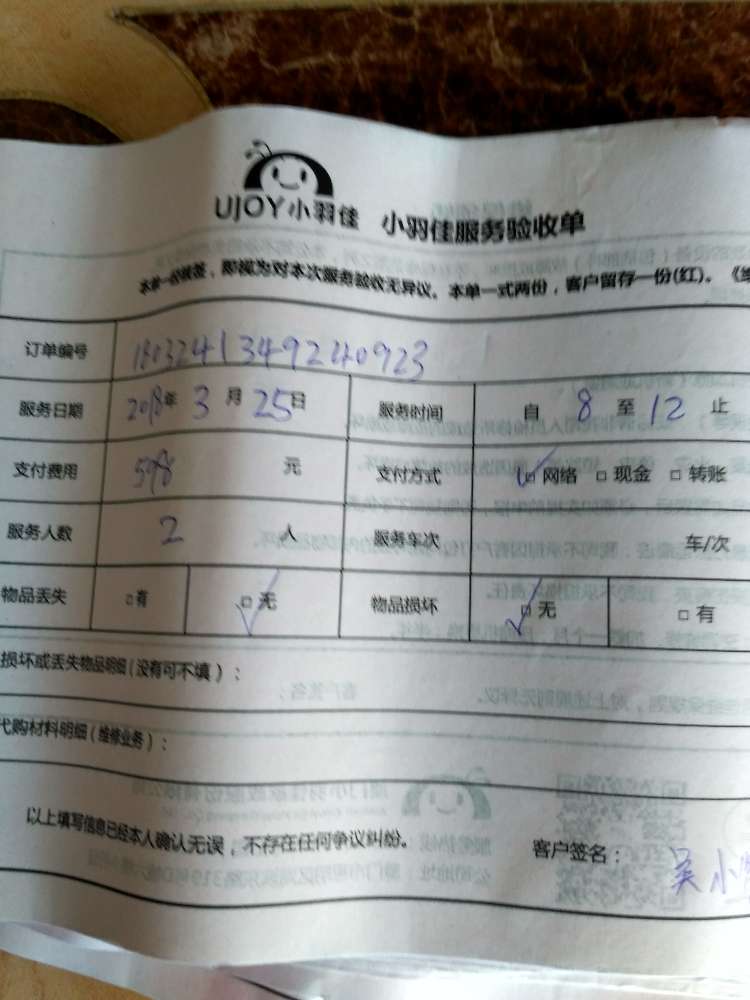 UJOY小羽佳 小羽佳服务验收单
本单一经被签，即视为对本次服务验收无异议。本单一式两份，客户留存一份(红)。
订单编号 1803241349240923
服务日期 2018年 3月 25日 服务时间 自 8 至 12 止
支付费用 598 元 支付方式 □网络 □现金 □转账
服务人数 2 人 服务车次 车/次
物品丢失 □有 □无 物品损坏 □无 □有
损坏或丢失物品明细(没有可不填)：
代购材料明细(维修业务)：
以上填写信息已经本人确认无误，不存在任何争议纠纷。
客户签名： 吴小